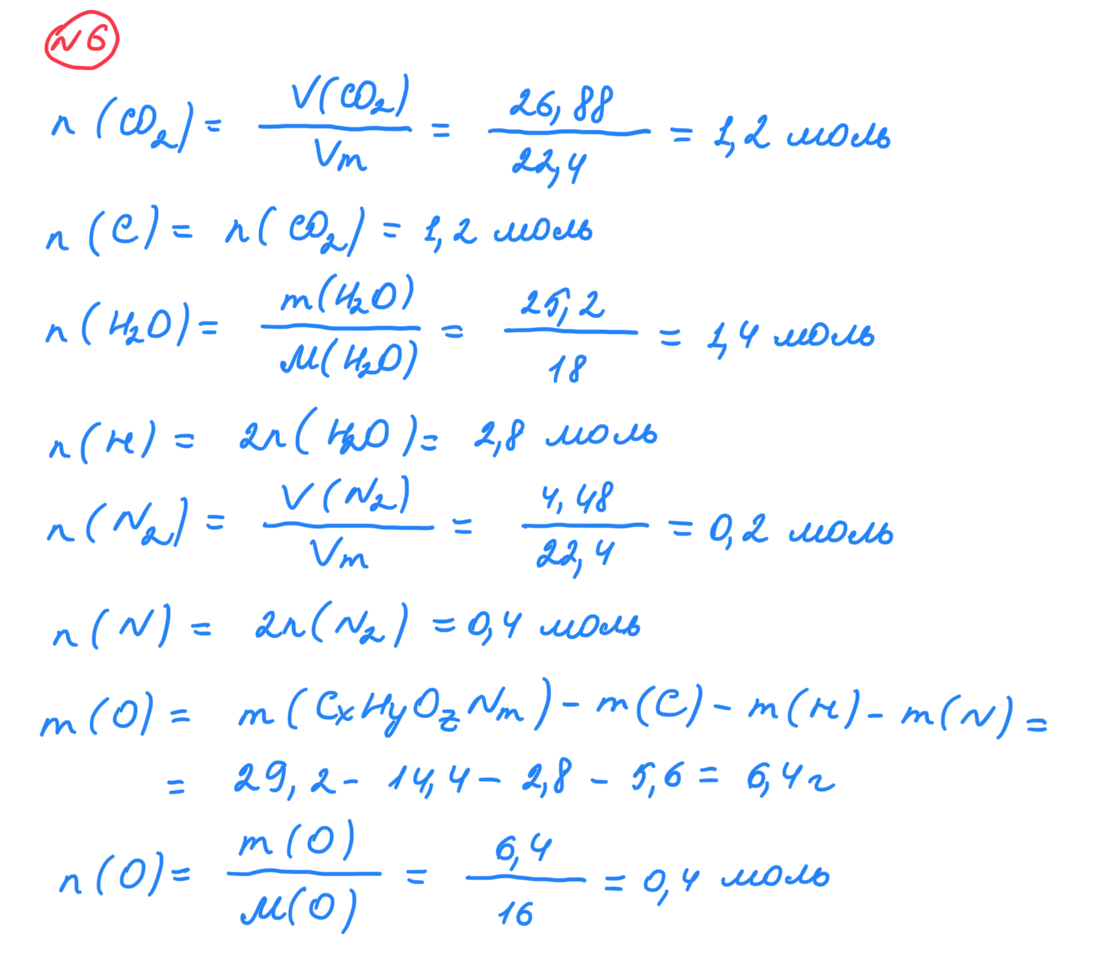 №6
n(CO₂) = V(CO₂)/Vm = 26,88/22,4 = 1,2 моль
n(C) = n(CO₂) = 1,2 моль
n(H₂O) = m(H₂O)/M(H₂O) = 25,2/18 = 1,4 моль
n(H) = 2n(H₂O) = 2,8 моль
n(N₂) = V(N₂)/Vm = 4,48/22,4 = 0,2 моль
n(N) = 2n(N₂) = 0,4 моль
m(O) = m(CxHyOzNm) - m(C) - m(H) - m(N) =
= 29,2 - 14,4 - 2,8 - 5,6 = 6,4 г
n(O) = m(O)/M(O) = 6,4/16 = 0,4 моль